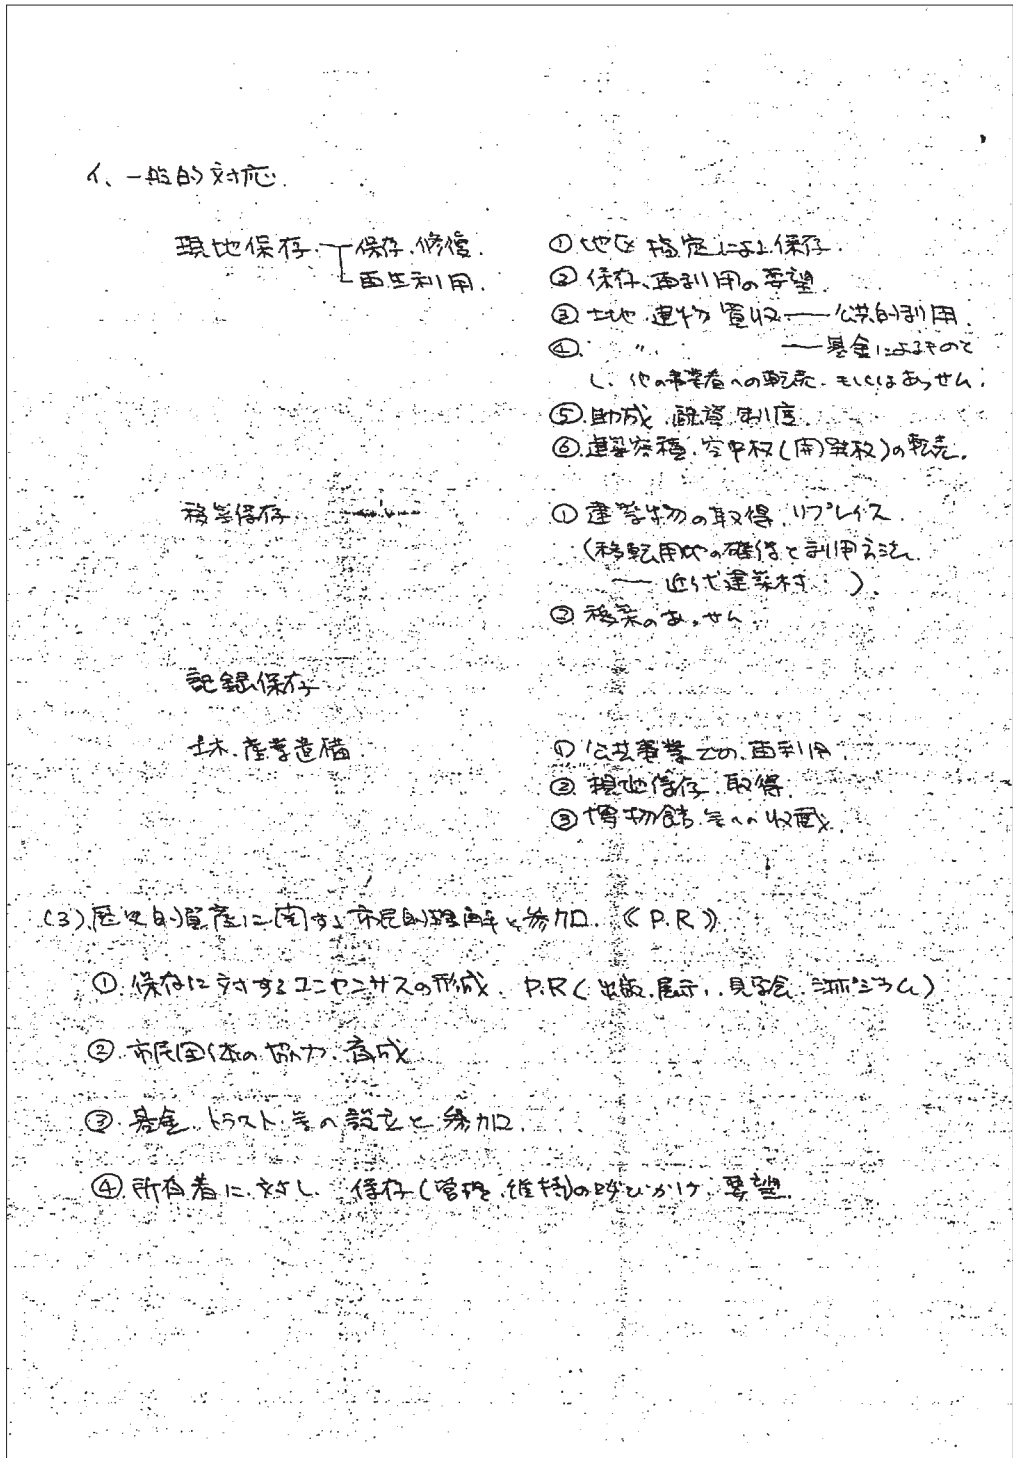 イ、一般的対応
現地保存 保存、修復 ① 地区指定による保存
再生利用 ② 保存、再利用の要望
③ 土地、建物買収 ── 公共的利用
④ 〃 ── 基金によるものと
し、他の事業者への転売、もしくはあっせん
⑤ 助成、融資制度
⑥ 建築容積、空中权(開発权)の転売
移築保存 ① 建築物の取得、リプレイス
(移転用地の確保と利用方法
── 近代建築村 )
② 移築のあっせん
記録保存
土木・産業遺構 ① 公共事業での再利用
② 現地保存、取得
③ 博物館等への収蔵
(3) 歴史的資産に関する市民的理解と参加 《P.R》
① 保存に対するコンセンサスの形成、P.R(出版、展示、見学会、シンポジウム)
② 市民団体の協力、育成
③ 基金、トラスト等の設立と参加
④ 所有者に対し、保存(管理、維持)の呼びかけ、要望